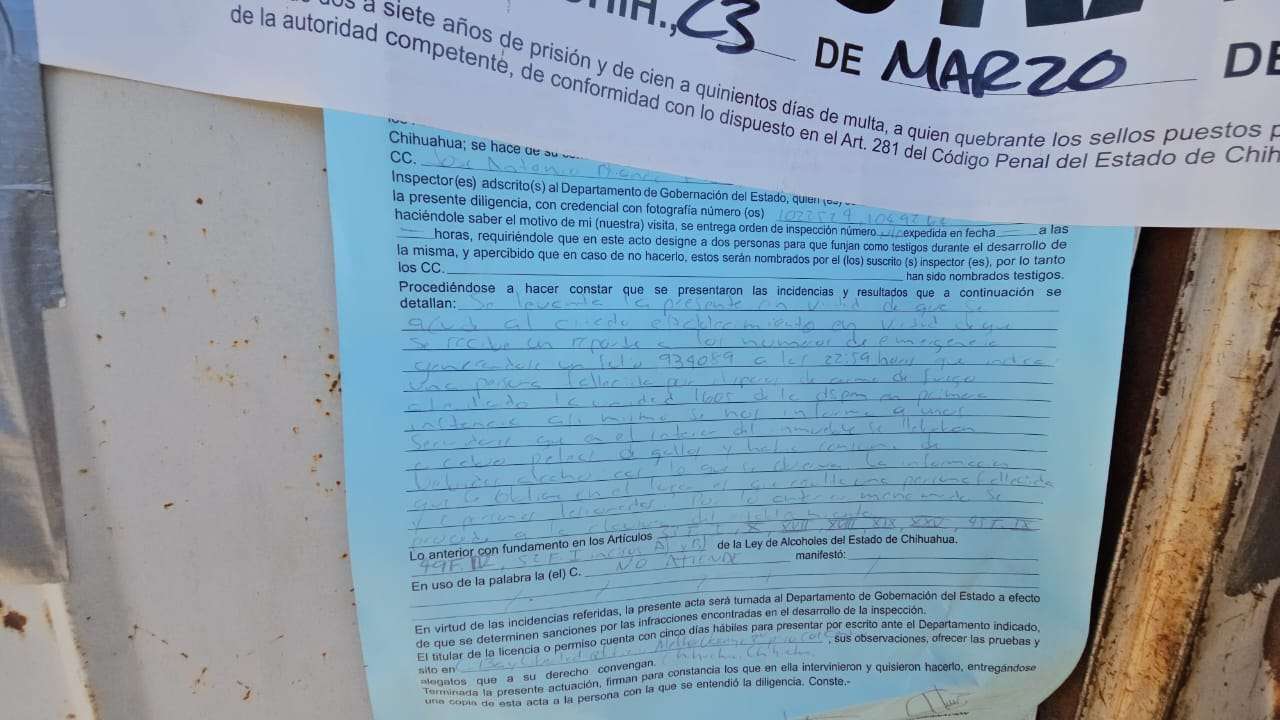 CHIH., 23 DE MARZO DE
a siete años de prisión y de cien a quinientos días de multa, a quien quebrante los sellos puestos p
de la autoridad competente, de conformidad con lo dispuesto en el Art. 281 del Código Penal del Estado de Chih
Chihuahua; se hace de su
CC. Jose Antonio
Inspector(es) adscrito(s) al Departamento de Gobernación del Estado, quien (es)
la presente diligencia, con credencial con fotografía número (os)
haciéndole saber el motivo de mi (nuestra) visita, se entrega orden de inspección número expedida en fecha a las
horas, requiriéndole que en este acto designe a dos personas para que funjan como testigos durante el desarrollo de
la misma, y apercibido que en caso de no hacerlo, estos serán nombrados por el (los) suscrito (s) inspector (es), por lo tanto
los CC. han sido nombrados testigos.
Procediéndose a hacer constar que se presentaron las incidencias y resultados que a continuación se
detallan: Se levanta la presente en vitud de que se
al citado establecimiento en vitud de que
Se recibe un reporte a los numeros de emergencia
un folio 934089 a las 22:59 horas que indica
una persona fallecida por disparos de arma de fuego
la unidad 1605 de la dspm en primera
instancia asi mismo se nos informa a unos
Servidores que en el interior del inmueble se llebaban
a cabo peleas de gallos y habia consumo de
bebidas alcoholicas lo que se observa la informacion
que en el lugar el que resulto una persona fallecida
y personas lesionadas. Por lo anterior mencionado se
procede a la clausura del establecimiento
Lo anterior con fundamento en los Artículos X XVII, XVIII, XIX, XXV, 45 F. IX
49 F. IX, 52 F I incisos A) y B) de la Ley de Alcoholes del Estado de Chihuahua.
En uso de la palabra la (el) C. NO ATIENDE manifestó:
En virtud de las incidencias referidas, la presente acta será turnada al Departamento de Gobernación del Estado a efecto
de que se determinen sanciones por las infracciones encontradas en el desarrollo de la inspección.
El titular de la licencia o permiso cuenta con cinco días hábiles para presentar por escrito ante el Departamento indicado,
sito en sus observaciones, ofrecer las pruebas y
alegatos que a su derecho convengan. Chihuahua, Chihuahua
Terminada la presente actuación, firman para constancia los que en ella intervinieron y quisieron hacerlo, entregándose
una copia de esta acta a la persona con la que se entendió la diligencia. Conste.-